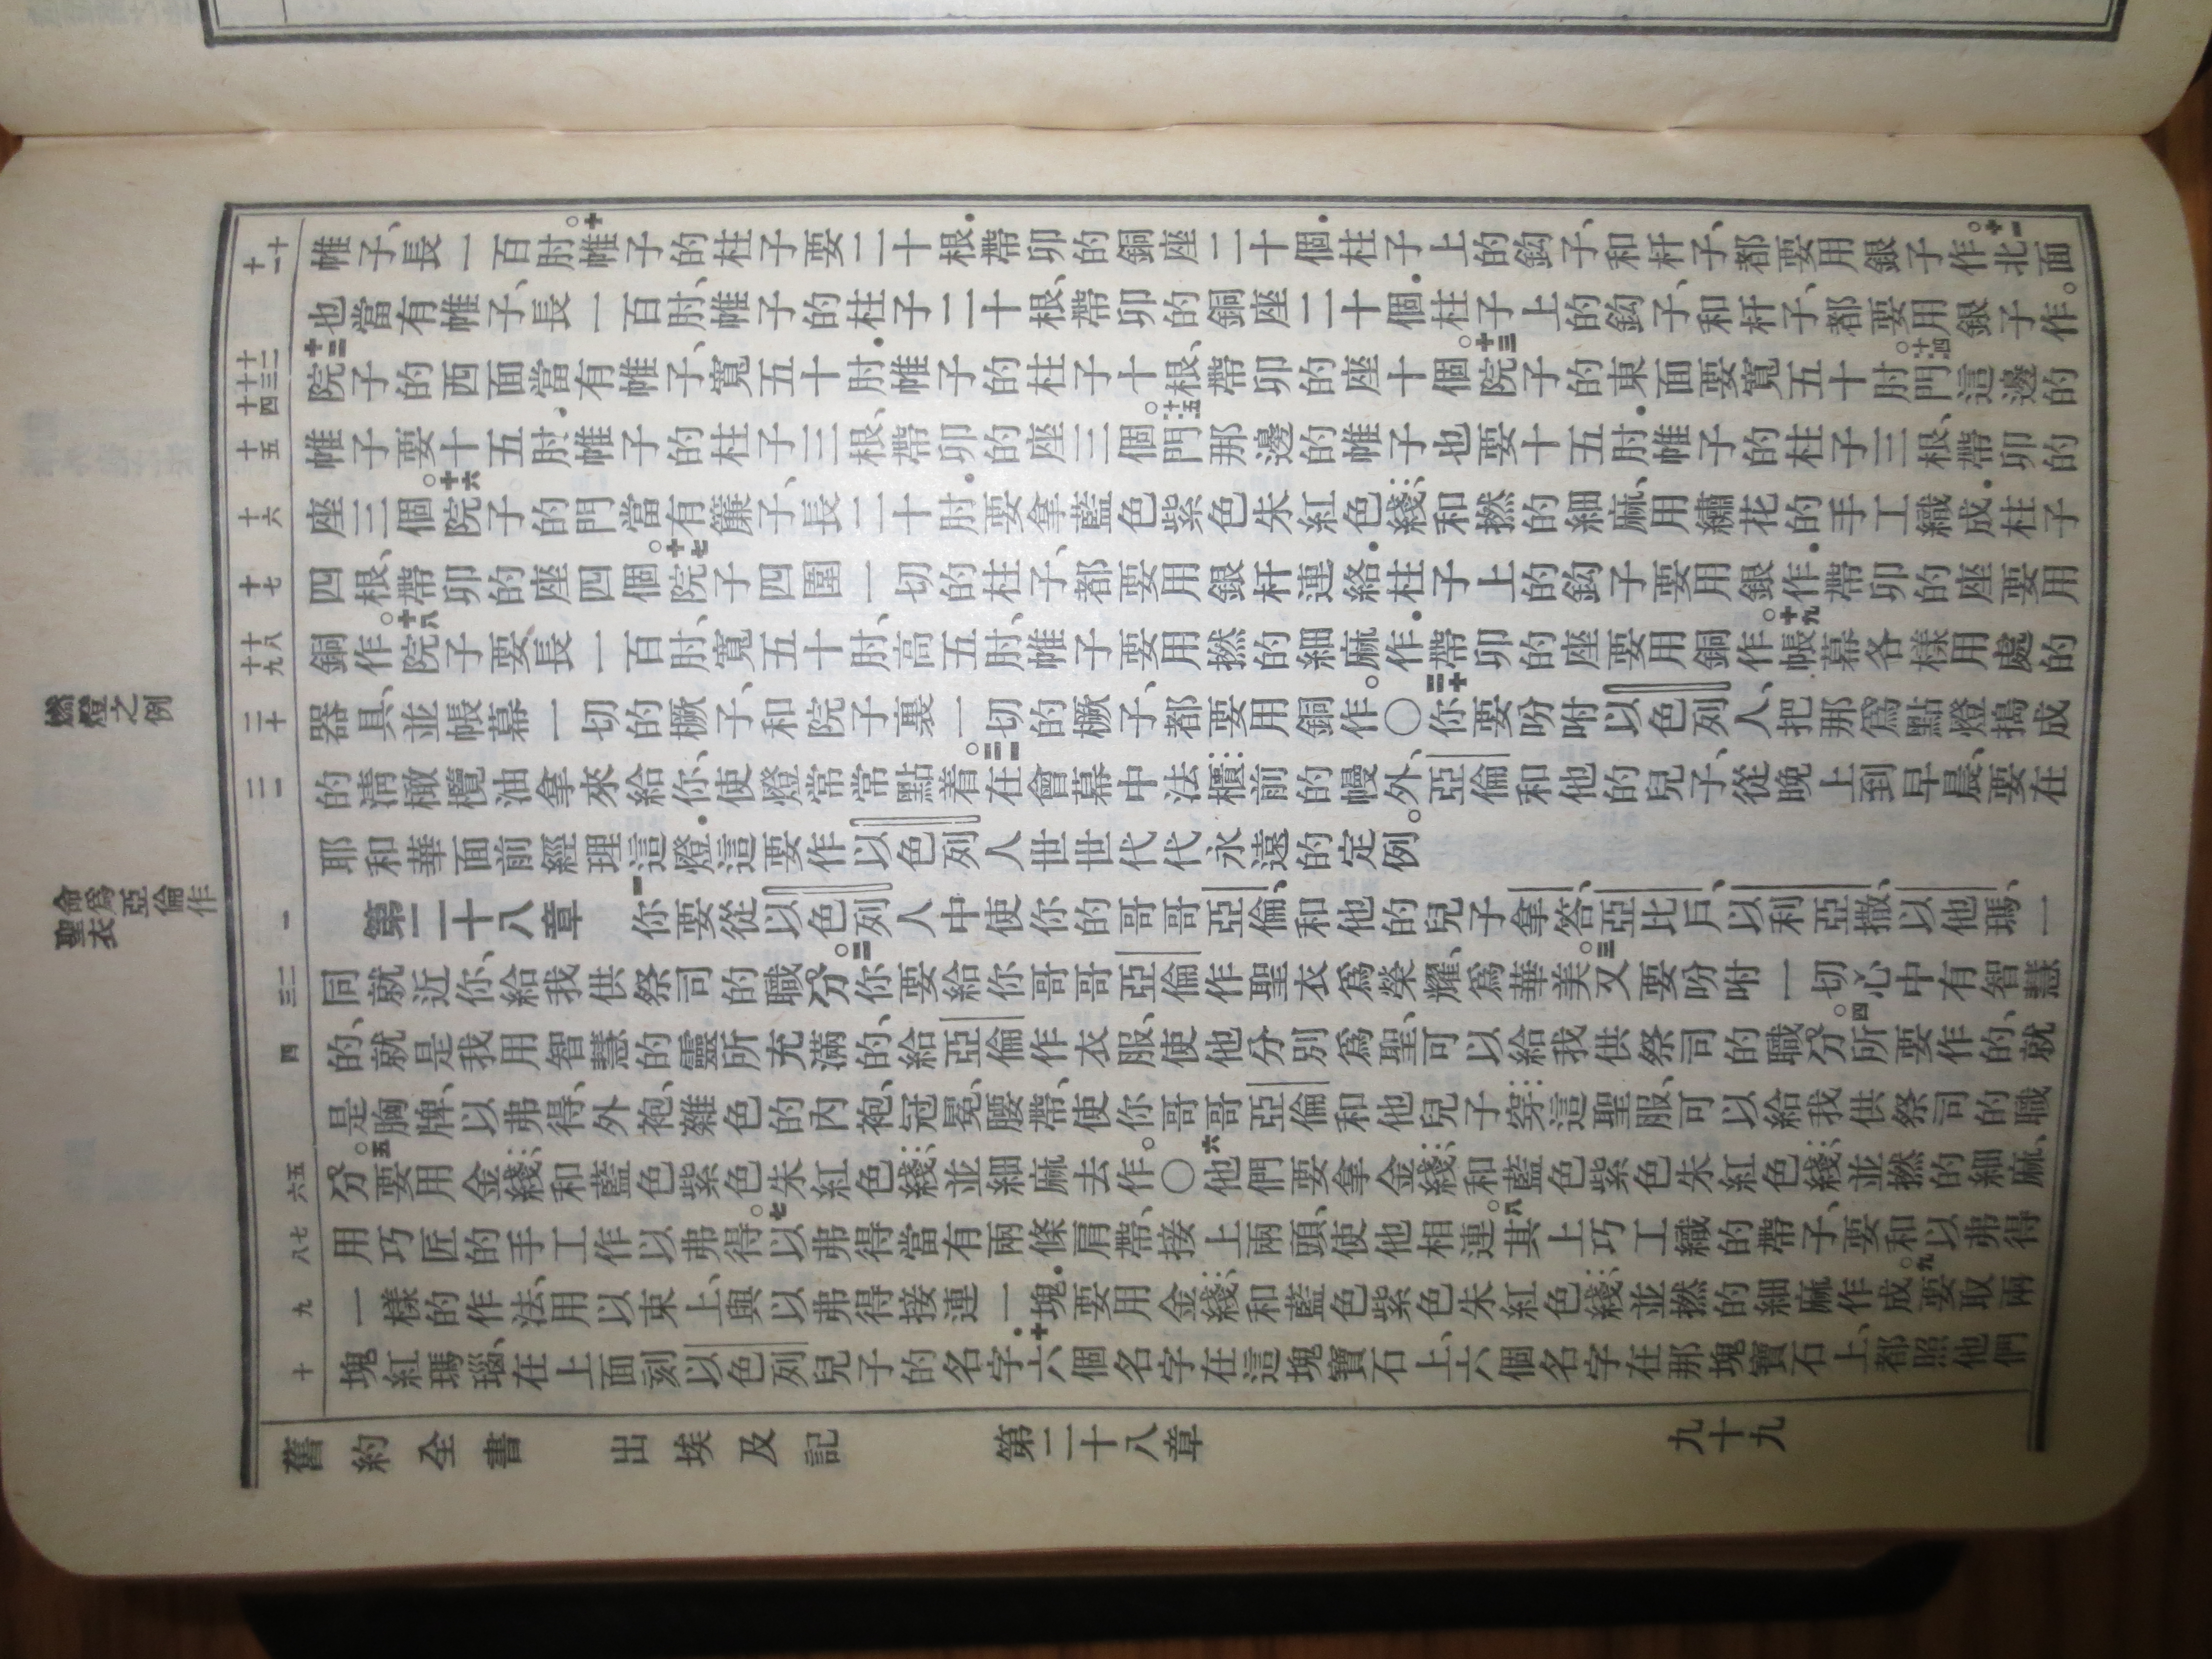 帷子、長一百肘。十帷子的柱子要二十根．帶卯的銅座二十個．柱子上的鈎子、和杆子、都要用銀子作。十一北面
也當有帷子、長一百肘、帷子的柱子二十根、帶卯的銅座二十個．柱子上的鈎子、和杆子、都要用銀子作。
十二院子的西面當有帷子、寬五十肘．帷子的柱子十根、帶卯的座十個。十三院子的東面要寬五十肘。十四門這邊的
帷子要十五肘．帷子的柱子三根、帶卯的座三個。十五門那邊的帷子也要十五肘．帷子的柱子三根、帶卯的
座三個。十六院子的門當有簾子、長二十肘．要拿藍色紫色朱紅色綫、和撚的細麻、用繡花的手工織成．柱子
四根、帶卯的座四個。十七院子四圍一切的柱子、都要用銀杆連絡．柱子上的鈎子要用銀作．帶卯的座要用
銅作。十八院子要長一百肘、寬五十肘、高五肘、帷子要用撚的細麻作．帶卯的座要用銅作。十九帳幕各樣用處的
器具、並帳幕一切的橛子、和院子裏一切的橛子、都要用銅作。〇二十你要吩咐以色列人、把那爲點燈搗成
的淸橄欖油拿來給你、使燈常常點着。二一在會幕中法櫃前的幔外、亞倫和他的兒子、從晚上到早晨、要在
耶和華面前經理這燈．這要作以色列人世世代代永遠的定例。
第二十八章 一你要從以色列人中使你的哥哥亞倫、和他的兒子拿答、亞比戶、以利亞撒、以他瑪、一
同就近你、給我供祭司的職分。二你要給你哥哥亞倫作聖衣爲榮耀、爲華美。三又要吩咐一切心中有智慧
的、就是我用智慧的靈所充滿的、給亞倫作衣服、使他分別爲聖、可以給我供祭司的職分。四所要作的、就
是胸牌、以弗得、外袍、雜色的內袍、冠冕、腰帶、使你哥哥亞倫和他兒子穿這聖服、可以給我供祭司的職
分。五要用金綫、和藍色紫色朱紅色綫、並細麻去作。〇六他們要拿金綫、和藍色紫色朱紅色綫、並撚的細麻、
用巧匠的手工作以弗得。七以弗得當有兩條肩帶、接上兩頭、使他相連。八其上巧工織的帶子、要和以弗得
一樣的作法、用以束上、與以弗得接連一塊．要用金綫、和藍色紫色朱紅色綫、並撚的細麻作成。九要取兩
塊紅瑪瑙、在上面刻以色列兒子的名字．十六個名字在這塊寶石上、六個名字在那塊寶石上、都照他們
舊約全書 出埃及記 第二十八章 九十九
十
十一
十二
十三
十四
十五
十六
十七
十八
十九
二十
二一
一
二
三
四
五
六
七
八
九
十
燃燈之例
命爲亞倫作
聖衣